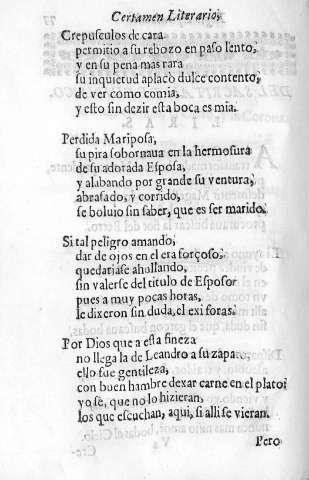 Certamen Literario,
Crepusculos de cara
permitio a su rebozo en paso lento,
y en su pena mas rara
su inquietud aplacò dulce contento,
de ver como comia,
y esto sin dezir esta boca es mia.
Perdida Mariposa,
su pira sobornaua en la hermosura
de su adorada Esposa,
y alabando por grande su ventura,
abrasado, y corrido,
se boluio sin saber, que es ser marido.
Si tal peligro amando,
dar de ojos en el era forçoso,
quedariase ahullando,
sin valerse del titulo de Esposor
pues a muy pocas horas,
le dixeron sin duda, el exi foras.
Por Dios que a esta fineza
no llega la de Leandro a su zapato,
ello fue gentileza,
con buen hambre dexar carne en el plato
yo se, que no lo hizieran,
los que escuchan, aqui, si alli se vieran.
Pero